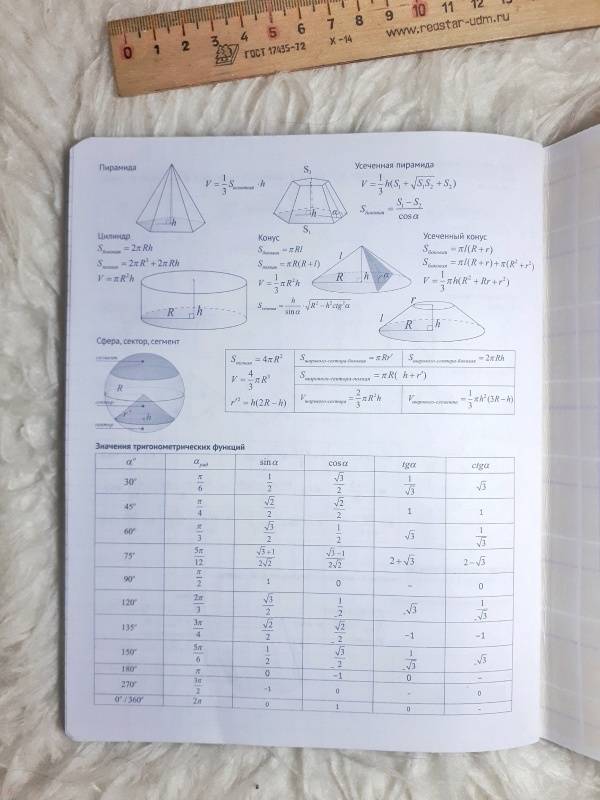 0 1 2 3 4 5 6 7 8 9 10 11 12 13
ГОСТ 17435-72 X-14
www.redstar-udm.ru
Пирамида
V = 1/3 Sоснования · h
h
S₂
h
α
S₁
Усеченная пирамида
V = 1/3 h(S₁ + √S₁S₂ + S₂)
Sбоковая = (S₁ − S₂)/cosα
Цилиндр
Sбоковая = 2πRh
Sполная = 2πR² + 2πRh
V = πR²h
R h
Конус
Sбоковая = πRl
Sполная = πR(R + l)
V = 1/3 πR²h
Sсечения = h/sinα · √R² − h²ctg²α
l
R h α
Усеченный конус
Sбоковая = πl(R + r)
= πl(R + r) + π(R² + r²)
V = 1/3 πh(R² + Rr + r²)
r
l
R h
Сфера, сектор, сегмент
сегмент
R
сектор
r' h
Sполная = 4πR²
V = 4/3 πR³
r'² = h(2R − h)
Sшарового-сектора-боковая = πRr'
Sшарового-сектора-боковая = 2πRh
Sшарового-сектора-полная = πR( h + r')
Vшарового-сектора = 2/3 πR²h
Vшарового-сегмента = 1/3 πh²(3R − h)
Значения тригонометрических функций
α° αрад sinα cosα tgα ctgα
30° π/6 1/2 √3/2 1/√3 √3
45° π/4 √2/2 √2/2 1 1
60° π/3 √3/2 1/2 √3 1/√3
75° 5π/12 √3+1/2√2 √3−1/2√2 2+√3 2−√3
90° π/2 1 0 – 0
120° 2π/3 √3/2 -1/2 -√3 -1/√3
135° 3π/4 √2/2 -√2/2 −1 −1
150° 5π/6 1/2 -√3/2 -1/√3 -√3
180° π 0 −1 0 –
270° 3π/2 −1 0 – 0
0° / 360° 2π 0 1 0 -